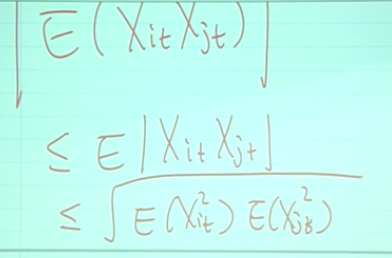 |E(X_{it}X_{jt})|
≤ E|X_{it}X_{jt}|
≤ √E(X_{it}^2) E(X_{jt}^2)